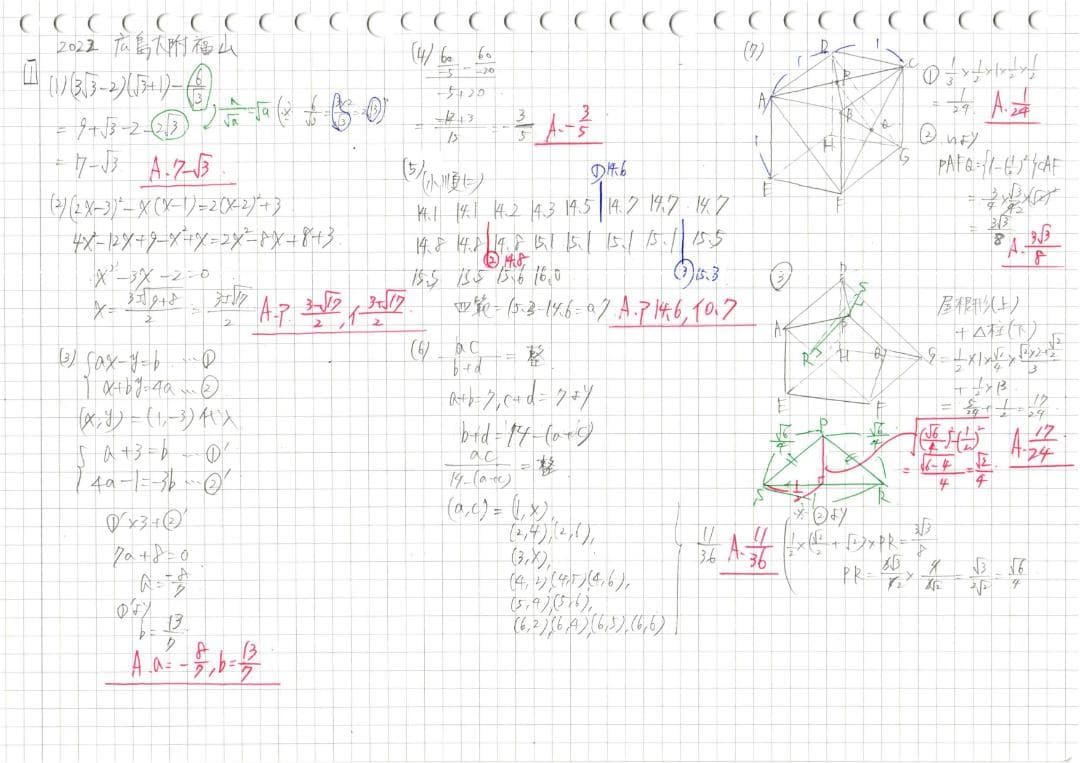 2022 広島大附福山
1
(1) (3√3-2)(√3+1) - 6/√3
a/√a = √a (※ 6/√3 = 3×2/√3 = 2√3)
= 9+√3-2-2√3
= 7-√3 A. 7-√3
(2) (2x-3)²-x(x-1)=2(x-2)²+3
4x²-12x+9-x²+x=2x²-8x+8+3
x²-3x-2=0
x= 3±√9+8/2 = 3±√17/2 A. ア. 3-√17/2, イ 3+√17/2
(3) {ax-y=b … ①
{x+by=4a … ②
(x,y)=(1,-3) 代入
{a+3=b … ①'
{4a-1=-3b … ②'
①'×3+②'
7a+8=0
a= -8/7
①'より
b= 13/7
A. a= -8/7, b= 13/7
(4) 60/-5 - 60/-20
-5+20
= -12+3/15 = -3/5 A. -3/5
(5) (小順に)
① 14.6
14.1 14.1 14.2 14.3 14.5 14.7 14.7 14.7
14.8 14.8 14.8 15.1 15.1 15.1 15.1 15.5
② 14.8
15.5 15.5 15.6 16.0 ③ 15.3
四範=15.3-14.6=0.7 A. ア 14.6, イ 0.7
(6) ac/b+d = 整
a+b=7, c+d=7より
b+d=14-(a+c)
ac/14-(a+c) = 整
(a,c)=(1,×)
(2,4),(2,6),
(3,×),
(4,2)(4,5)(4,6),
(5,4)(5,6),
(6,2)(6,4)(6,5),(6,6)
11/36 A. 11/36
(7)
D
C
A
P
B
Q
H
G
E
F
1
1
1
① 1/3×1/2×1×1/2×1/2
= 1/24 A. 1/24
② ①より
PAFQ={1-(1/2)²}CAF
= 3/4×√3/4×(√2)²
= 3√3/8
A. 3√3/8
③
D
S
A
P
R
H
Q
G
E
F
屋根形(上)
+△柱(下)
= 1/2×1×√2/4×√2×2+√2/2/3
+ 1/2×1×1
= 5/24+1/2=17/24
A. 17/24
P
√6/4
√6/4
S
1/2
1
R
√(√6/4)²-(1/2)²
= √6-4/4 = √2/4
※②より
1/2×(√2/2+√2)×PR= 3√3/8
PR= 3√3/8×4/3√2 = √3/2√2 = √6/4